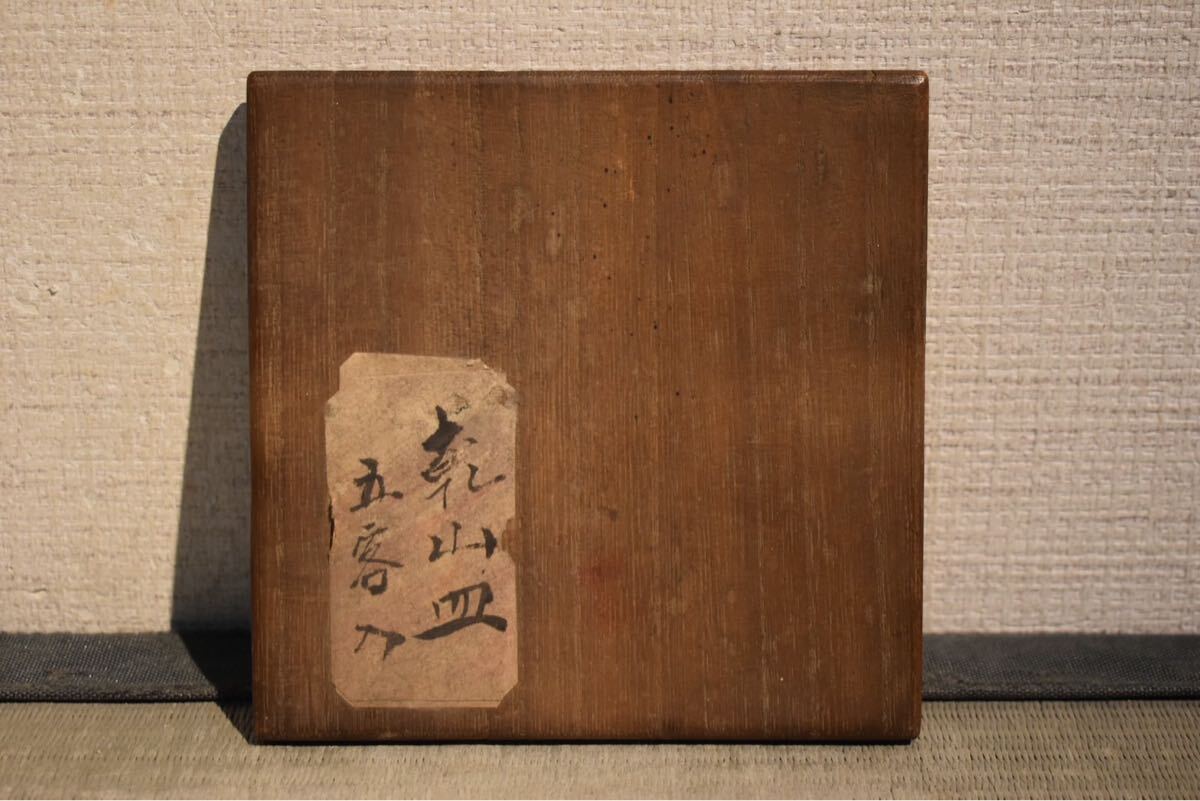 乾山皿
五客入